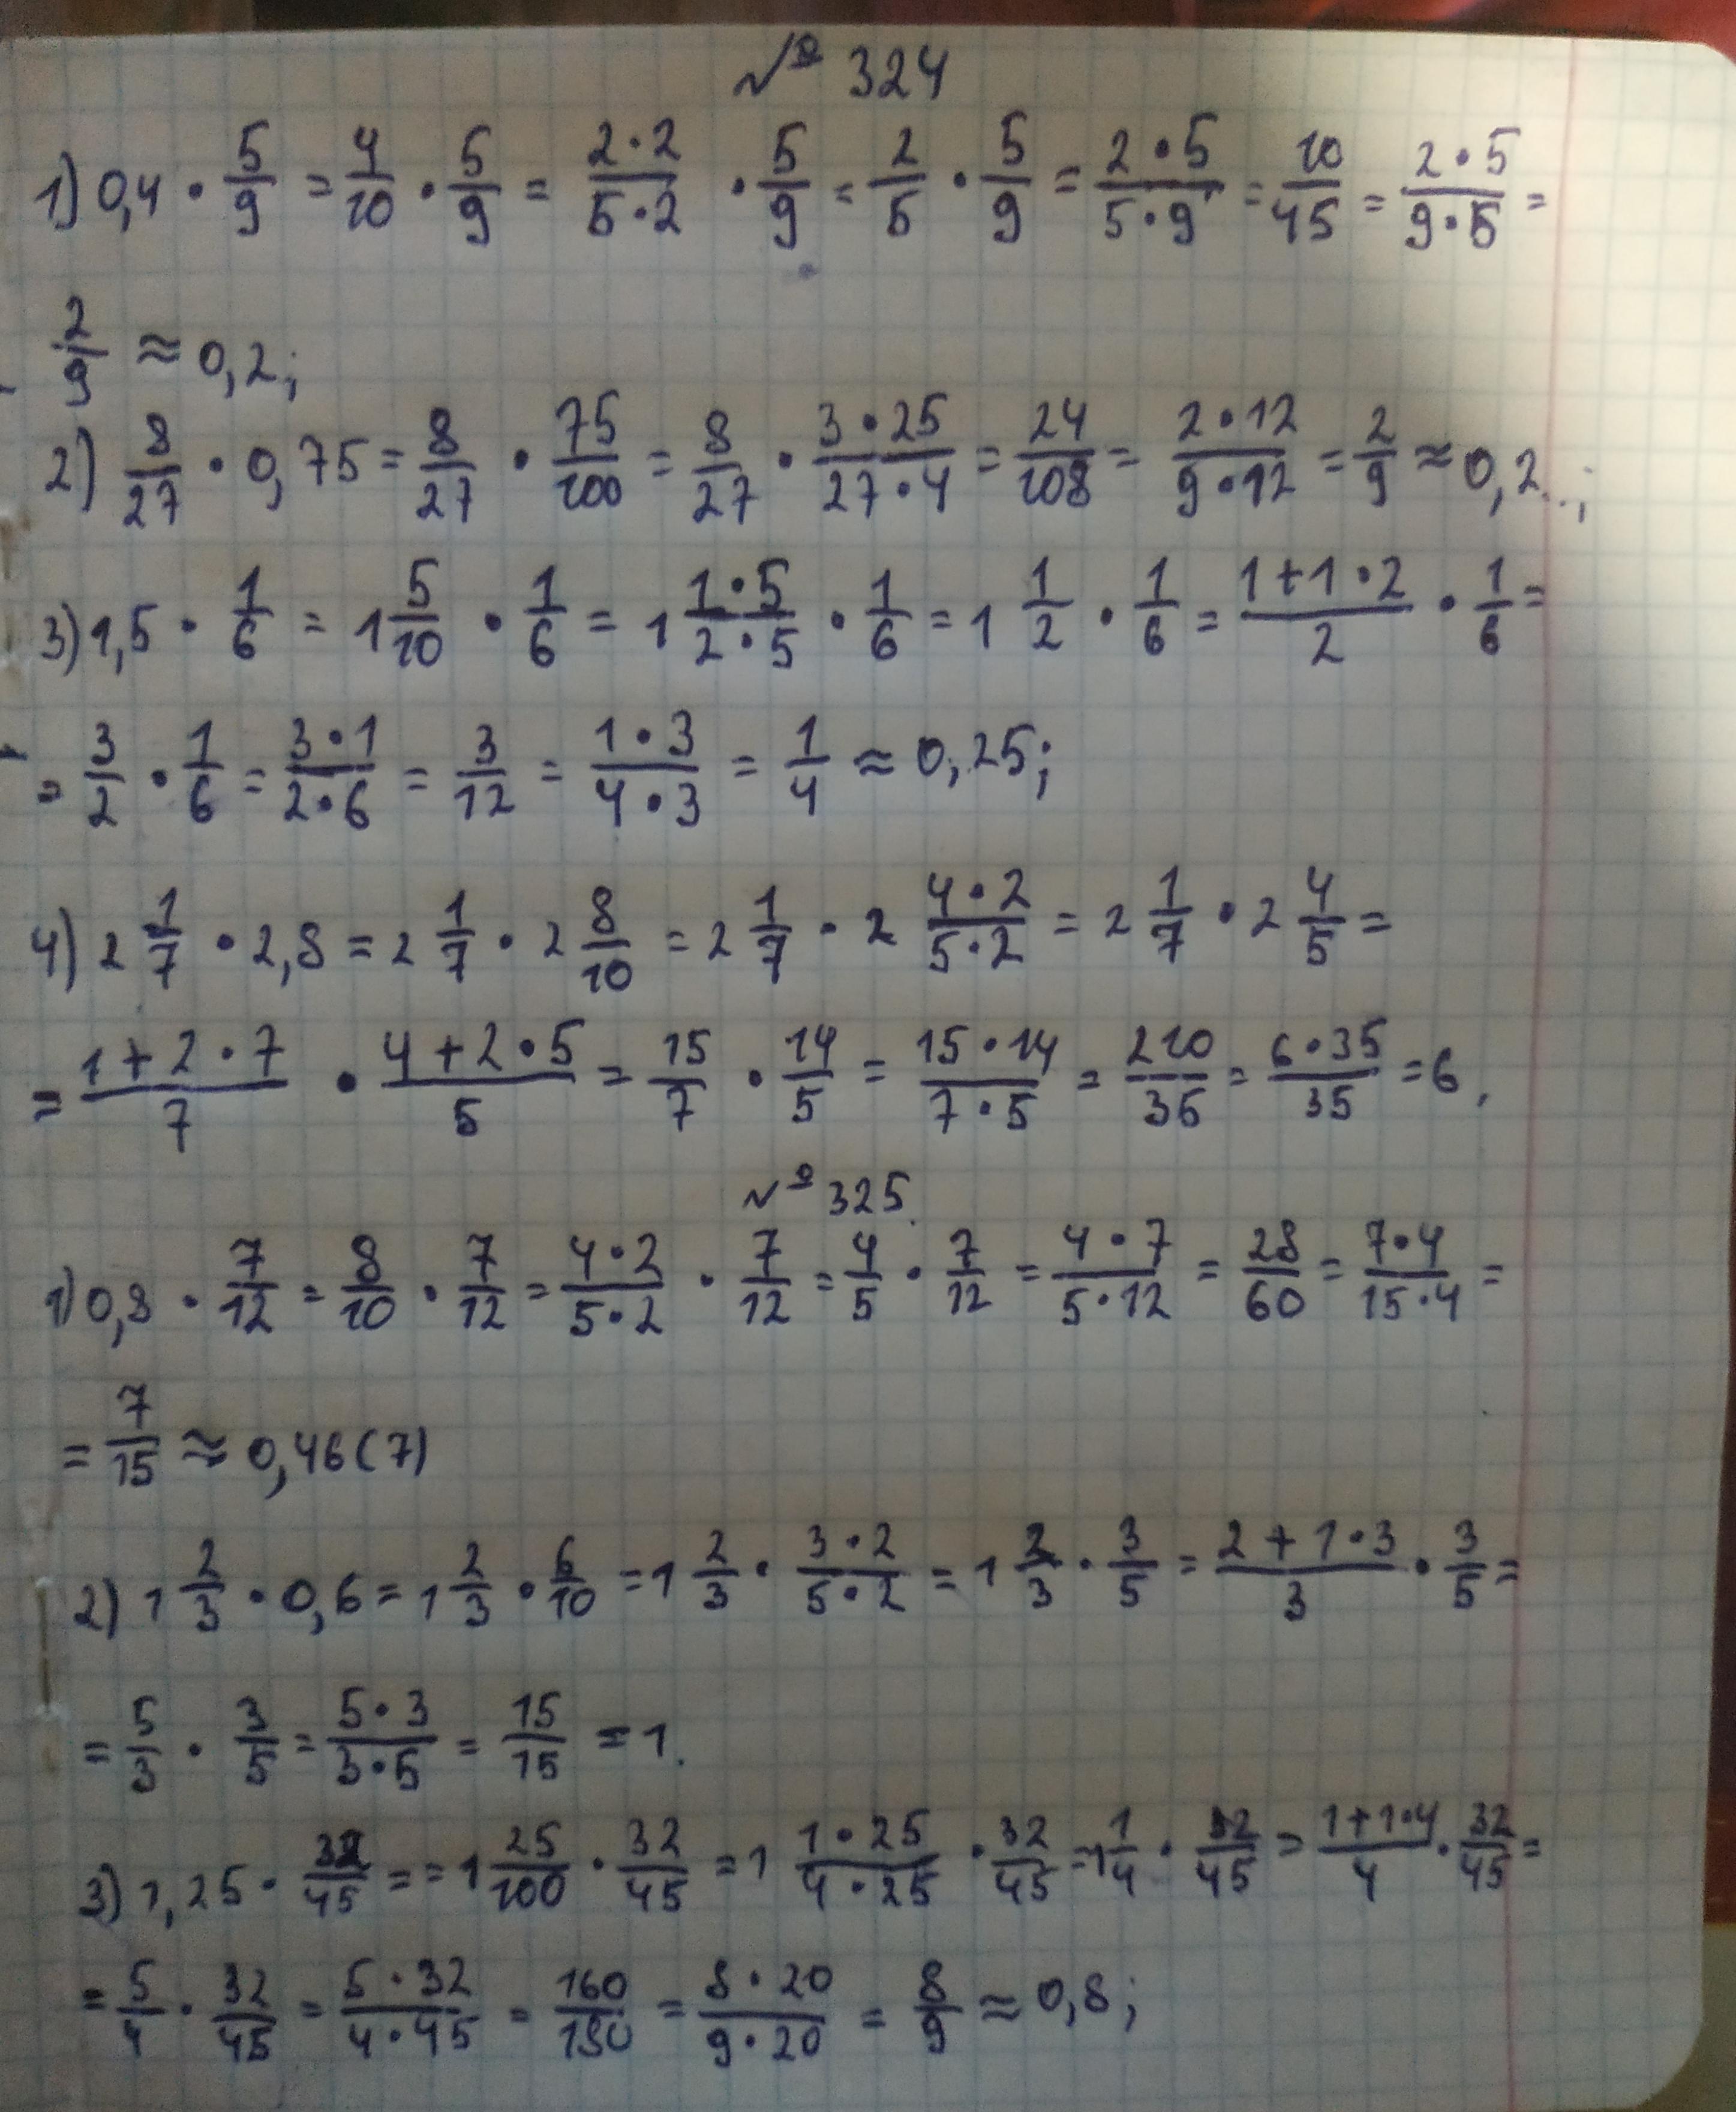 № 324
1) 0,4 · 5/9 = 4/10 · 5/9 = 2·2/5·2 · 5/9 = 2/5 · 5/9 = 2·5/5·9 = 10/45 = 2·5/9·5 =
2/9 ≈ 0,2;
2) 8/27 · 0,75 = 8/27 · 75/100 = 8/27 · 3·25/27·4 = 24/108 = 2·12/9·12 = 2/9 ≈ 0,2..;
3) 1,5 · 1/6 = 1 5/10 · 1/6 = 1 1·5/2·5 · 1/6 = 1 1/2 · 1/6 = 1+1·2/2 · 1/6 =
= 3/2 · 1/6 = 3·1/2·6 = 3/12 = 1·3/4·3 = 1/4 ≈ 0,25;
4) 2 1/7 · 2,8 = 2 1/7 · 2 8/10 = 2 1/7 · 2 4·2/5·2 = 2 1/7 · 2 4/5 =
= 1+2·7/7 · 4+2·5/5 = 15/7 · 14/5 = 15·14/7·5 = 210/35 = 6·35/35 = 6.
№ 325.
1) 0,8 · 7/12 = 8/10 · 7/12 = 4·2/5·2 · 7/12 = 4/5 · 7/12 = 4·7/5·12 = 28/60 = 7·4/15·4 =
= 7/15 ≈ 0,46(7)
2) 1 2/3 · 0,6 = 1 2/3 · 6/10 = 1 2/3 · 3·2/5·2 = 1 2/3 · 3/5 = 2+1·3/3 · 3/5 =
= 5/3 · 3/5 = 5·3/3·5 = 15/15 = 1.
3) 1,25 · 32/45 = = 1 25/100 · 32/45 = 1 1·25/4·25 · 32/45 = 1 1/4 · 32/45 = 1+1·4/4 · 32/45 =
= 5/4 · 32/45 = 5·32/4·45 = 160/180 = 8·20/9·20 = 8/9 ≈ 0,8;